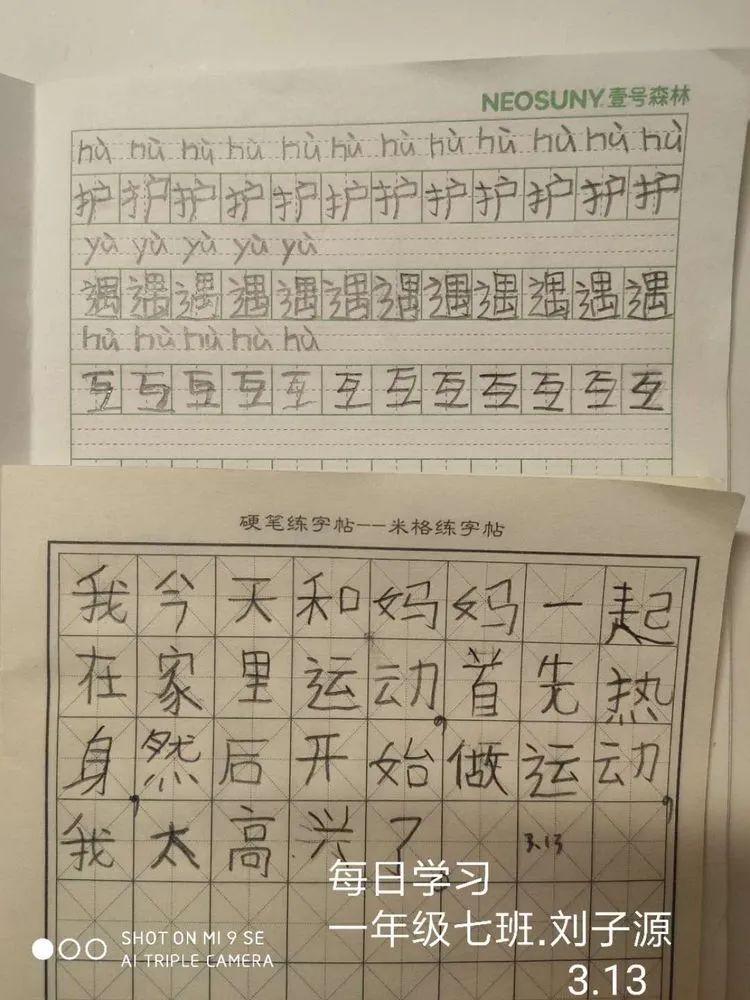 NEOSUNY 壹号森林
hù hù hù hù hù hù hù hù hù hù hù hù
护 护 护 护 护 护 护 护 护 护 护 护
yù yù yù yù yù
遇 遇 遇 遇 遇 遇 遇 遇 遇 遇 遇 遇
hù hù hù hù hù
互 互 互 互 互 互 互 互 互 互 互 互
硬笔练字帖--米格练字帖
我今天和妈妈一起
在家里运动,首先热
身,然后开始做运动,
我太高兴了 3.13
每日学习
一年级七班.刘子源
3.13
SHOT ON MI 9 SE
AI TRIPLE CAMERA